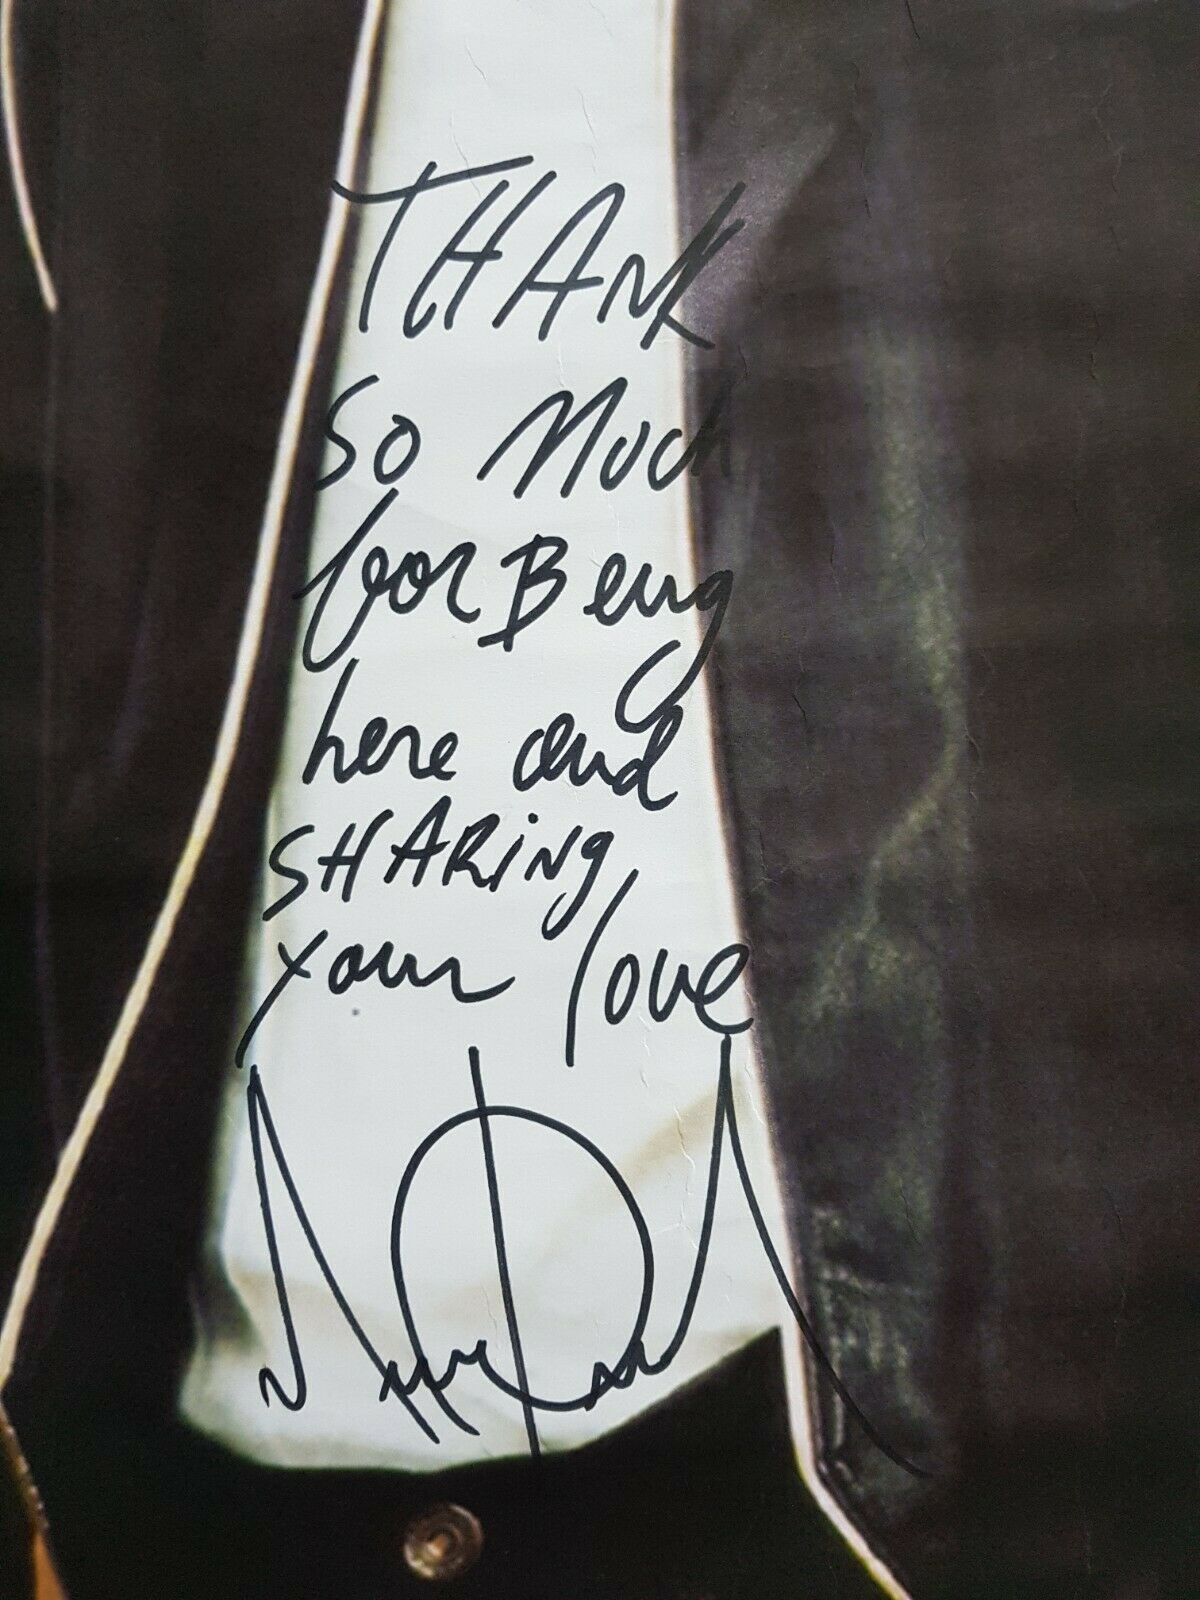 THANK
so Much
for Being
here and
SHARiNg
your love